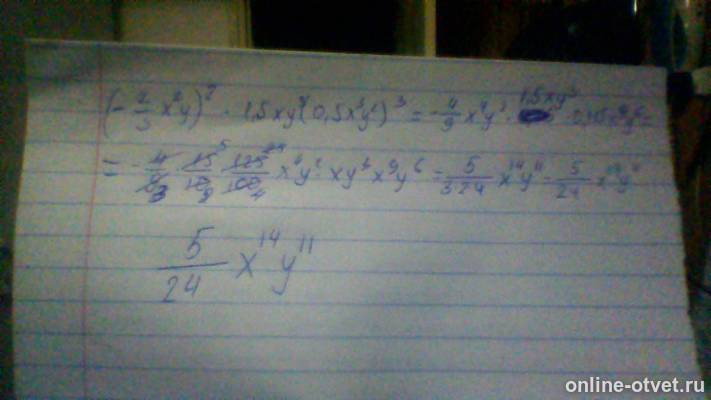 (-2/3 x²y)² · 1,5xy³(0,5x³y²)³ = -4/9 x⁴y² · 1,5xy³ · 0,125x⁹y⁶ =
= -4/9 · 15/10 · 125/100 x⁴y² · xy³ x⁹y⁶ = 5/324 x¹⁴y¹¹ = 5/24 x¹⁴y¹¹
5/24 x¹⁴y¹¹
online-otvet.ru